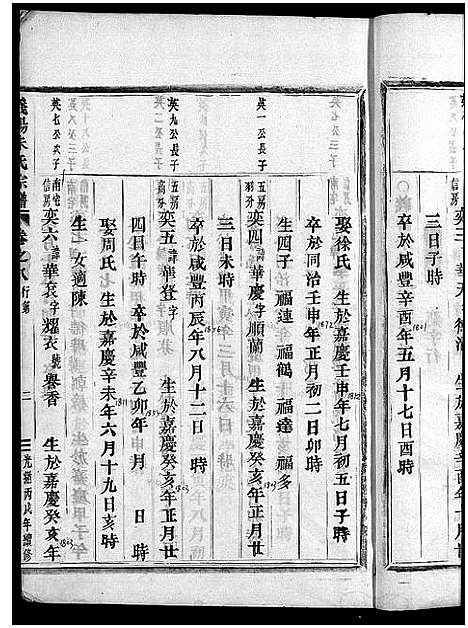 三日子時
卒於咸豐辛酉年五月十七日酉時
娶徐氏 生於嘉慶壬申年七月初五日子時
1812
卒於同治壬申年正月初二日卯時
1872
生四子 福連 福鶴 福達 福多
英一公長子
五房
奕四 諱華慶 字順蘭 生於嘉慶癸亥年正月廿
1803
三日未時
卒於咸豐丙辰年八月十二日 時
1856
英九公長子
五房
奕五 諱華登 字 生於嘉慶癸亥年正月廿
1803
四日午時 卒於咸豐乙卯年 月 日 時
娶周氏 生於嘉慶辛未年六月十九日亥時
1811
生一女適陳
英七公次子
南宅
信房
奕六 諱華袞 字耀衣 號譽香 生於嘉慶癸亥年
1803
氏宗譜
卷之八 行第
三
光緒丙戌年續修